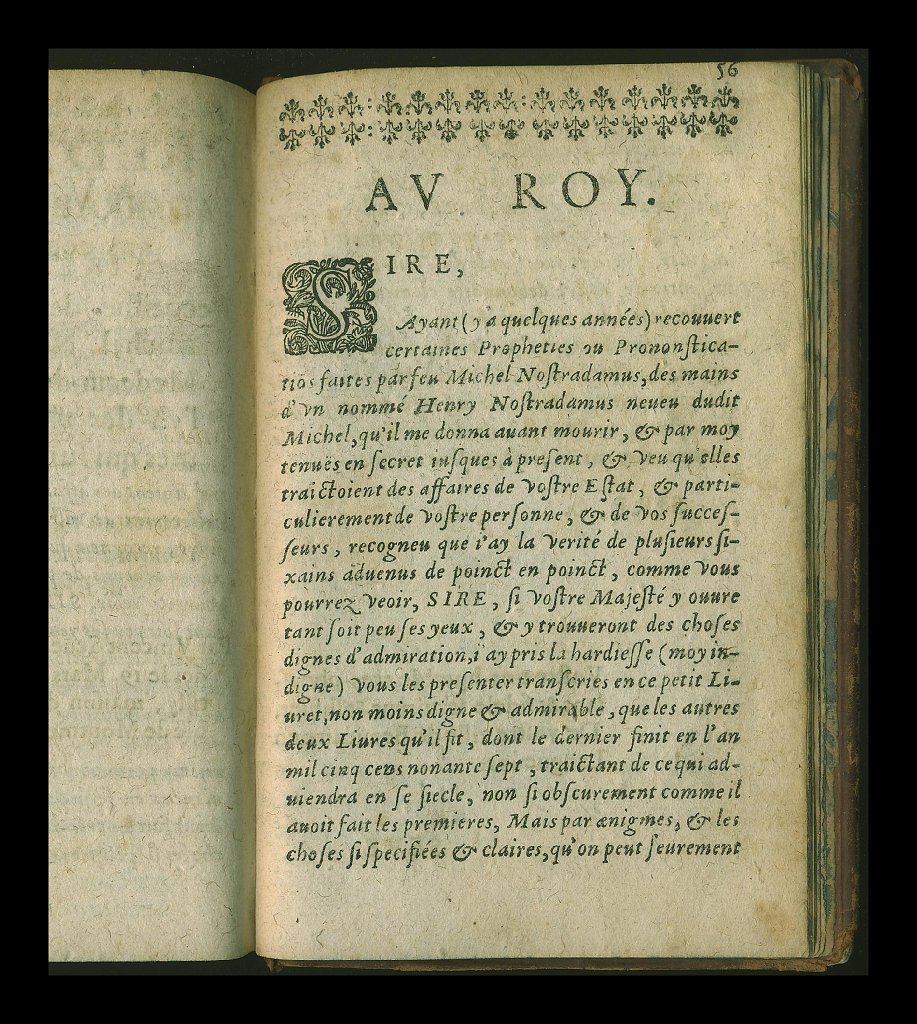 56
AV ROY.
SIRE,
Ayant (y a quelques années) recouuert
certaines Propheties ou Prononſtica-
tios faites par feu Michel Noſtradamus, des mains
d'vn nommé Henry Noſtradamus neueu dudit
Michel, qu'il me donna auant mourir, & par moy
tenuës en ſecret iuſques à preſent, & veu qu'elles
traictoient des affaires de voſtre Eſtat, & parti-
culierement de voſtre perſonne, & de vos ſucceſ-
ſeurs, recogneu que i'ay la verité de pluſieurs ſi-
xains aduenus de poinct en poinct, comme vous
pourrez veoir, SIRE, ſi voſtre Majeſté y ouure
tant ſoit peu ſes yeux, & y trouueront des choſes
dignes d'admiration, i'ay pris la hardieſſe (moy in-
digne) vous les preſenter tranſcries en ce petit Li-
uret, non moins digne & admirable, que les autres
deux Liures qu'il fit, dont le dernier finit en l'an
mil cinq cens nonante ſept, traictant de ce qui ad-
uiendra en ſe ſiecle, non ſi obſcurement comme il
auoit fait les premieres, Mais par ænigmes, & les
choſes ſi ſpecifiées & claires, qu'on peut ſeurement